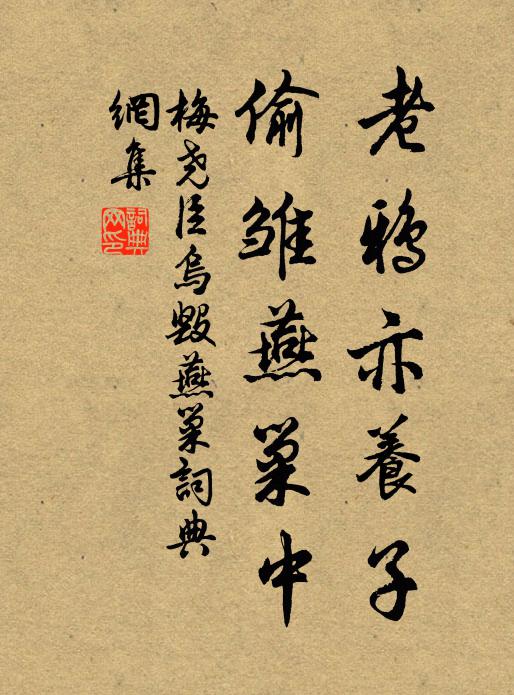 老鴉亦養子
偷雛燕巢中
梅堯臣烏毀燕巢詞典
網集
詞典
网印